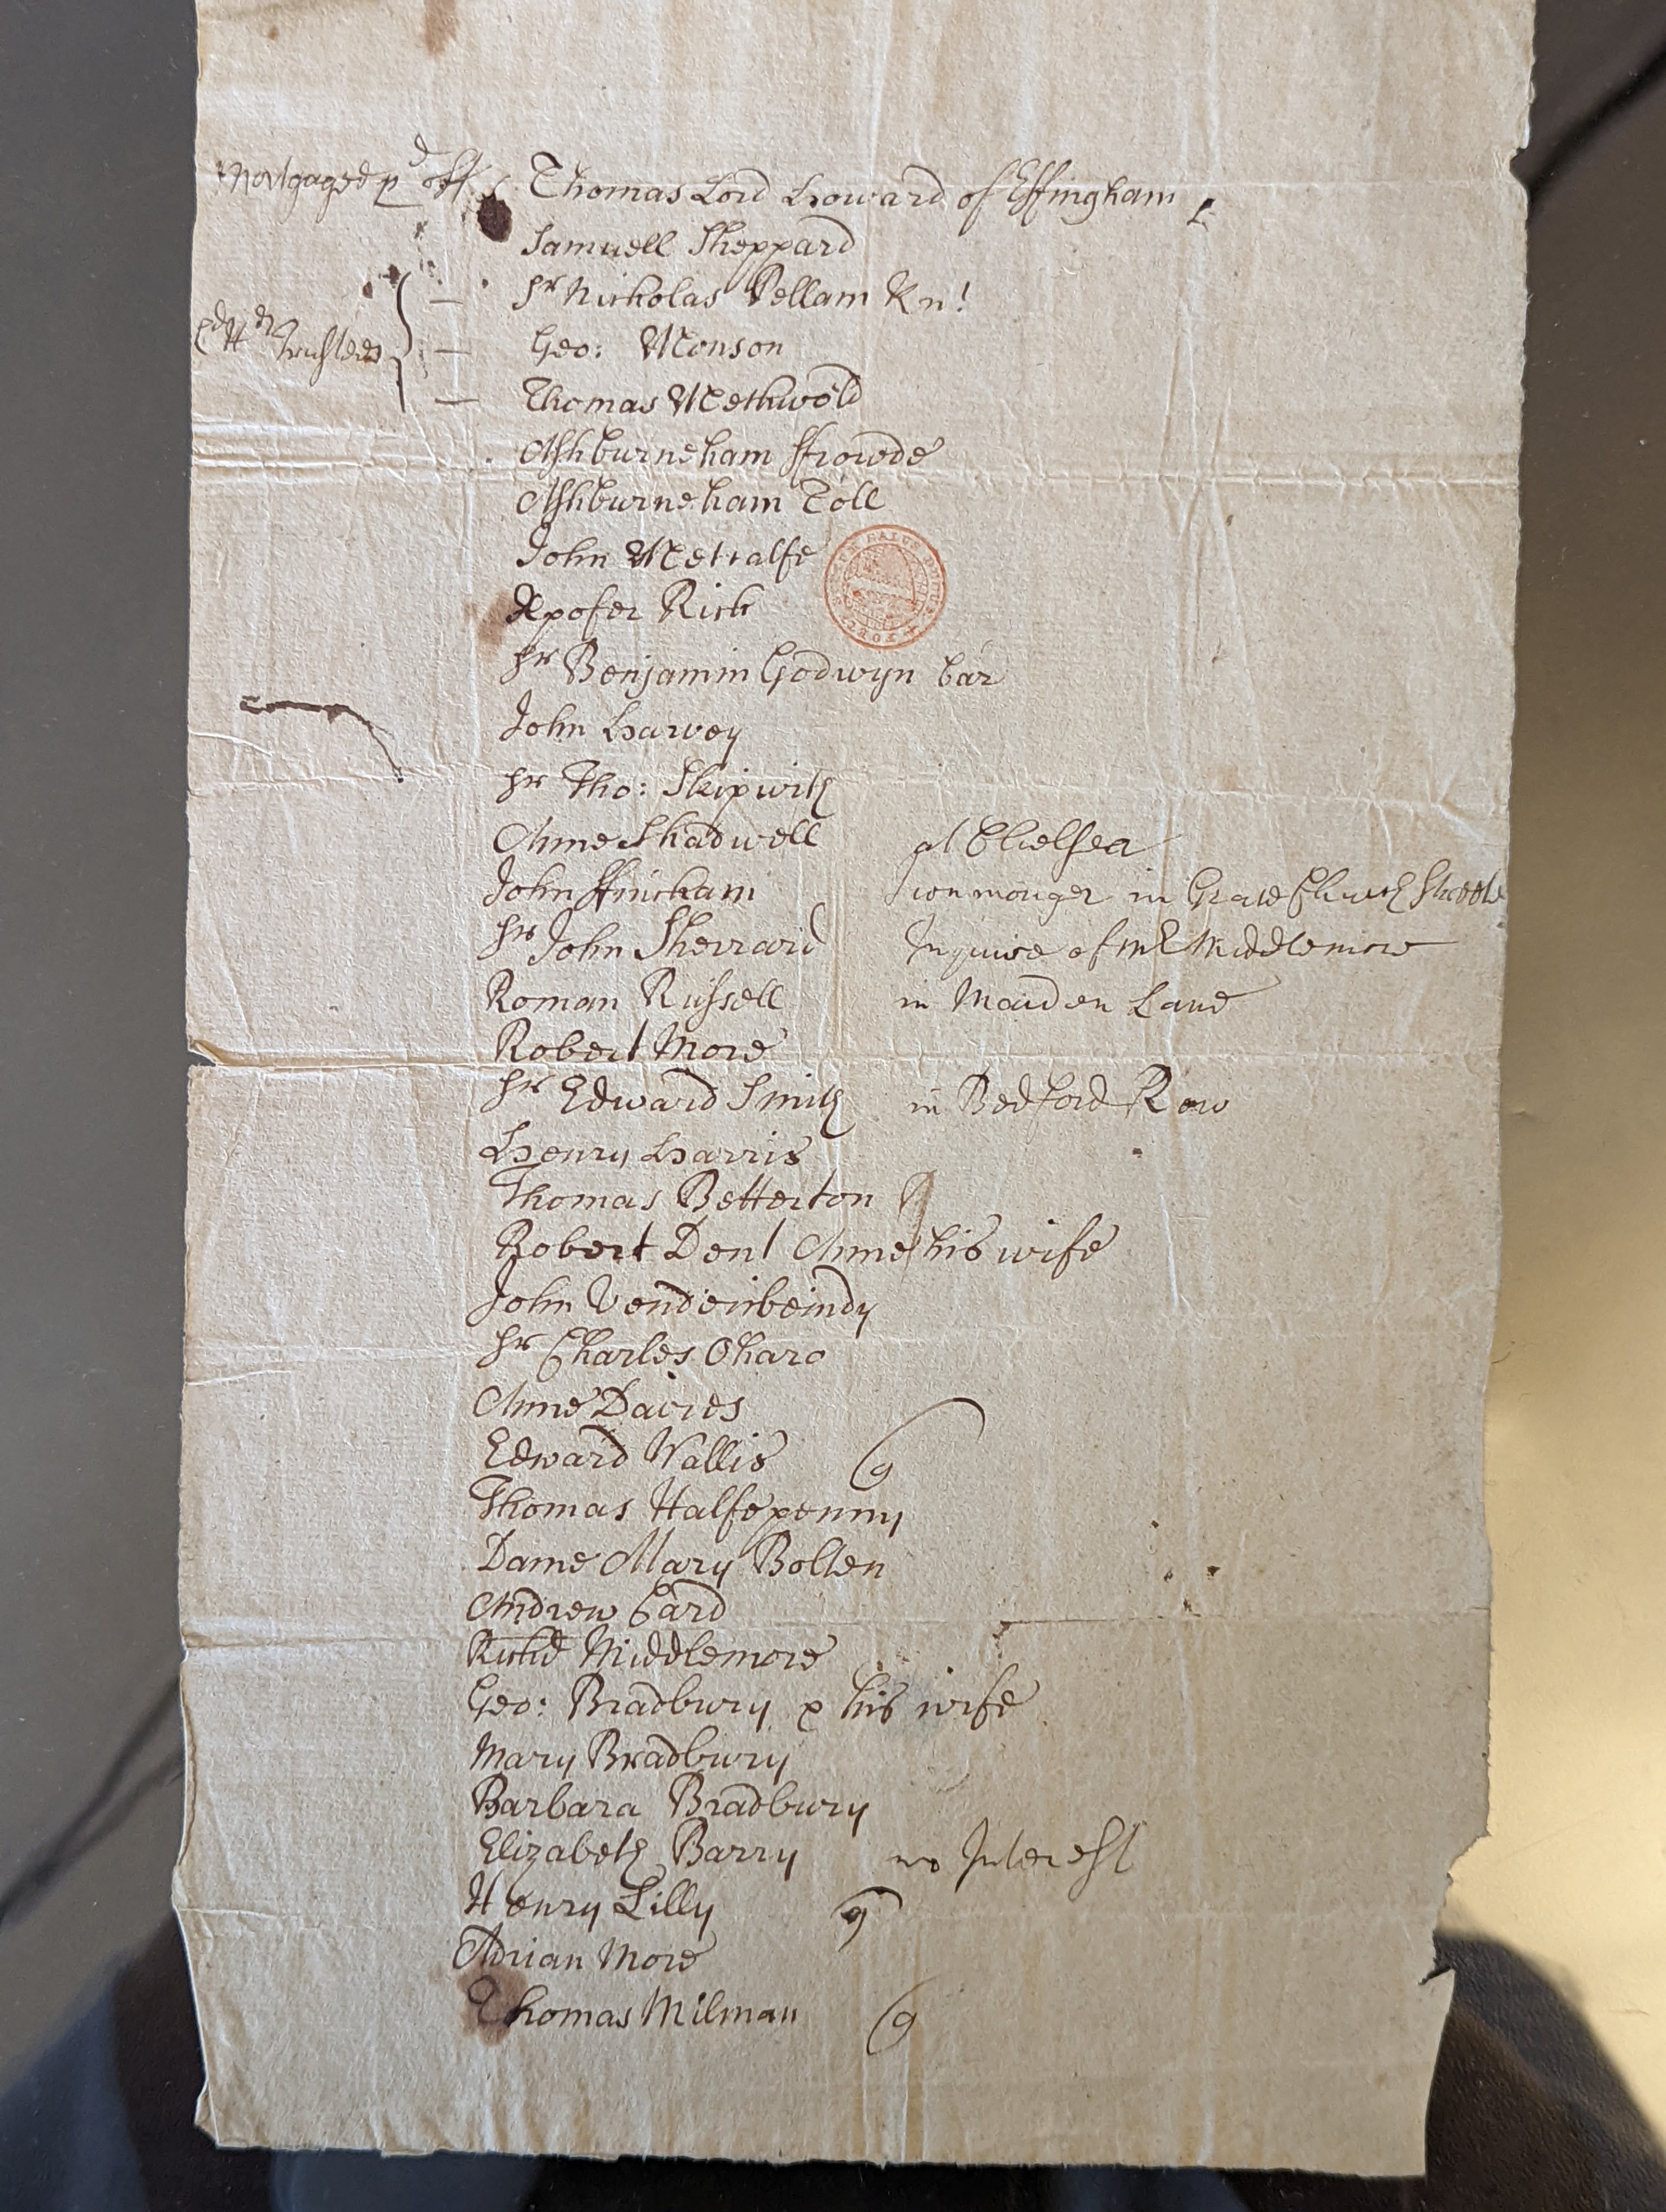 Mortgaged pd off Thomas Lord Howard of Effingham
Samuell Sheppard
Sr Nicholas Pellam Knt
Trustees Geo: Monson
Thomas Methwold
Ashburneham ffrowde
Ashburneham Toll
John Metcalfe
Xpofer Rich
Sr Benjamin Godwyn bar
John Harvey
Sr Tho: Skipwith
Anne Shadwell at Chelsea
John ffincham Ironmonger in Grace Church Streete
Sr John Sherrard Inquire of Mr Middlemore
Roman Russell in Maiden Lane
Robert More
Sr Edward Smith in Bedford Row
Henry Harris
Thomas Betterton
Robert Dent Anne his wife
John Vendenbeindy
Sr Charles Oharo
Anne Davies
Edward Wallis
Thomas Halfepenny
Dame Mary Bolten
Andrew Card
Richd Middlemore
Geo: Bradbury & his wife
Mary Bradbury
Barbara Bradbury
Elizabeth Barry no Interest
Henry Lilly
Adrian More
Thomas Milman